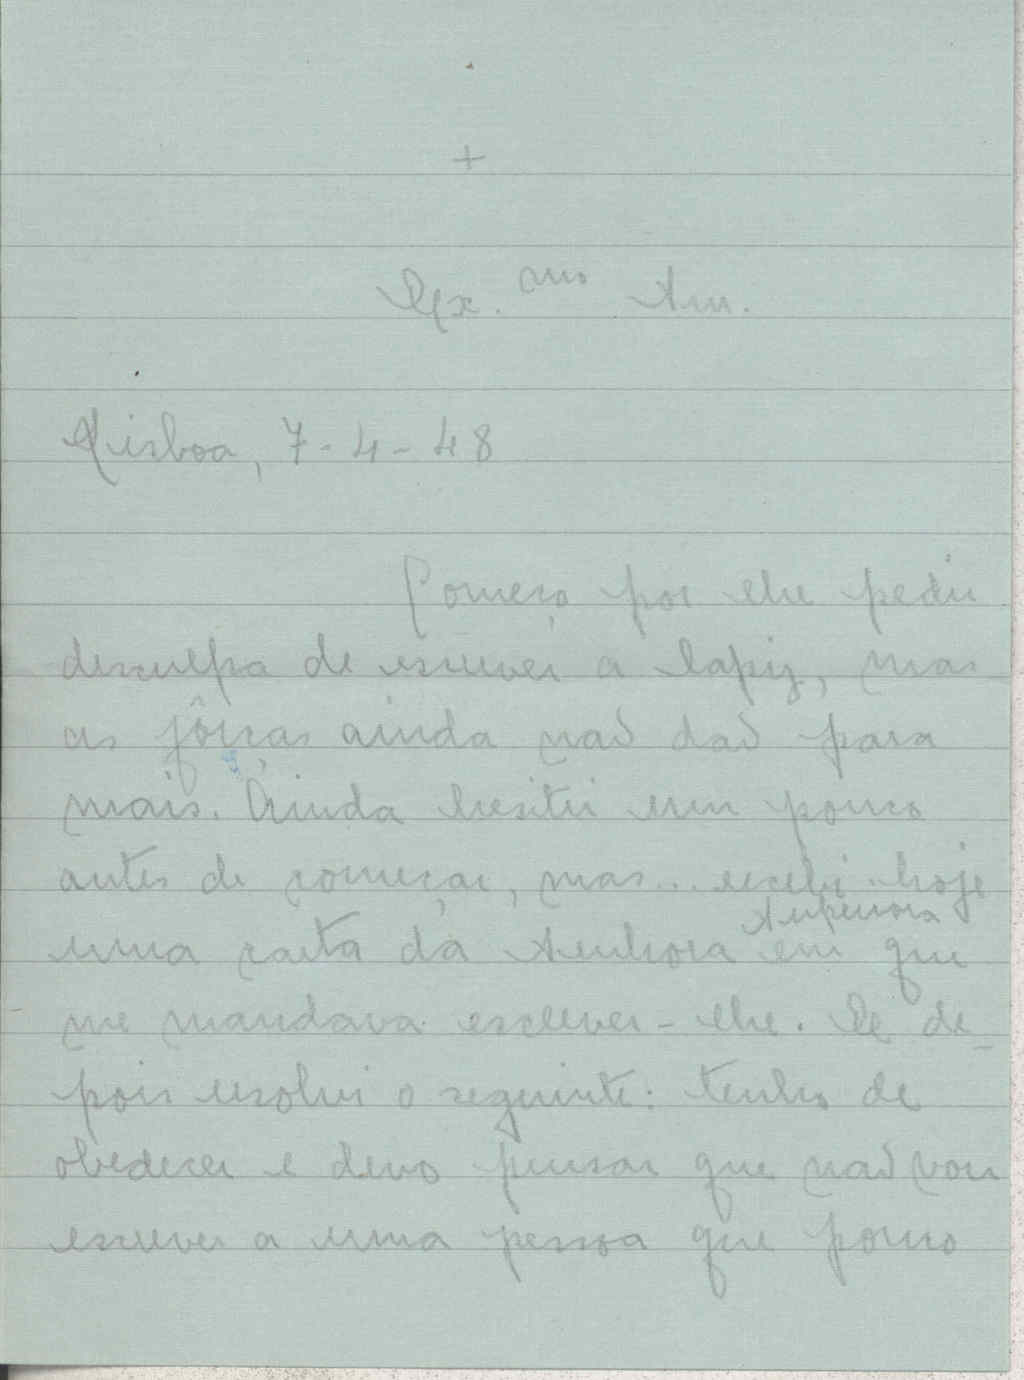 +
Ex.mo Sn.
Lisboa, 7-4-48
Começo por lhe pedir
desculpa de escrever a lapiz, mas
as fôrças ainda não dão para
mais. Ainda hesitei um pouco
antes de começar, mas... recebi hoje
uma carta da Senhora Superiora em que
me mandava escrever-lhe. E de-
pois resolvi o seguinte: tenho de
obedecer e devo pensar que não vou
escrever a uma pessoa que pouco